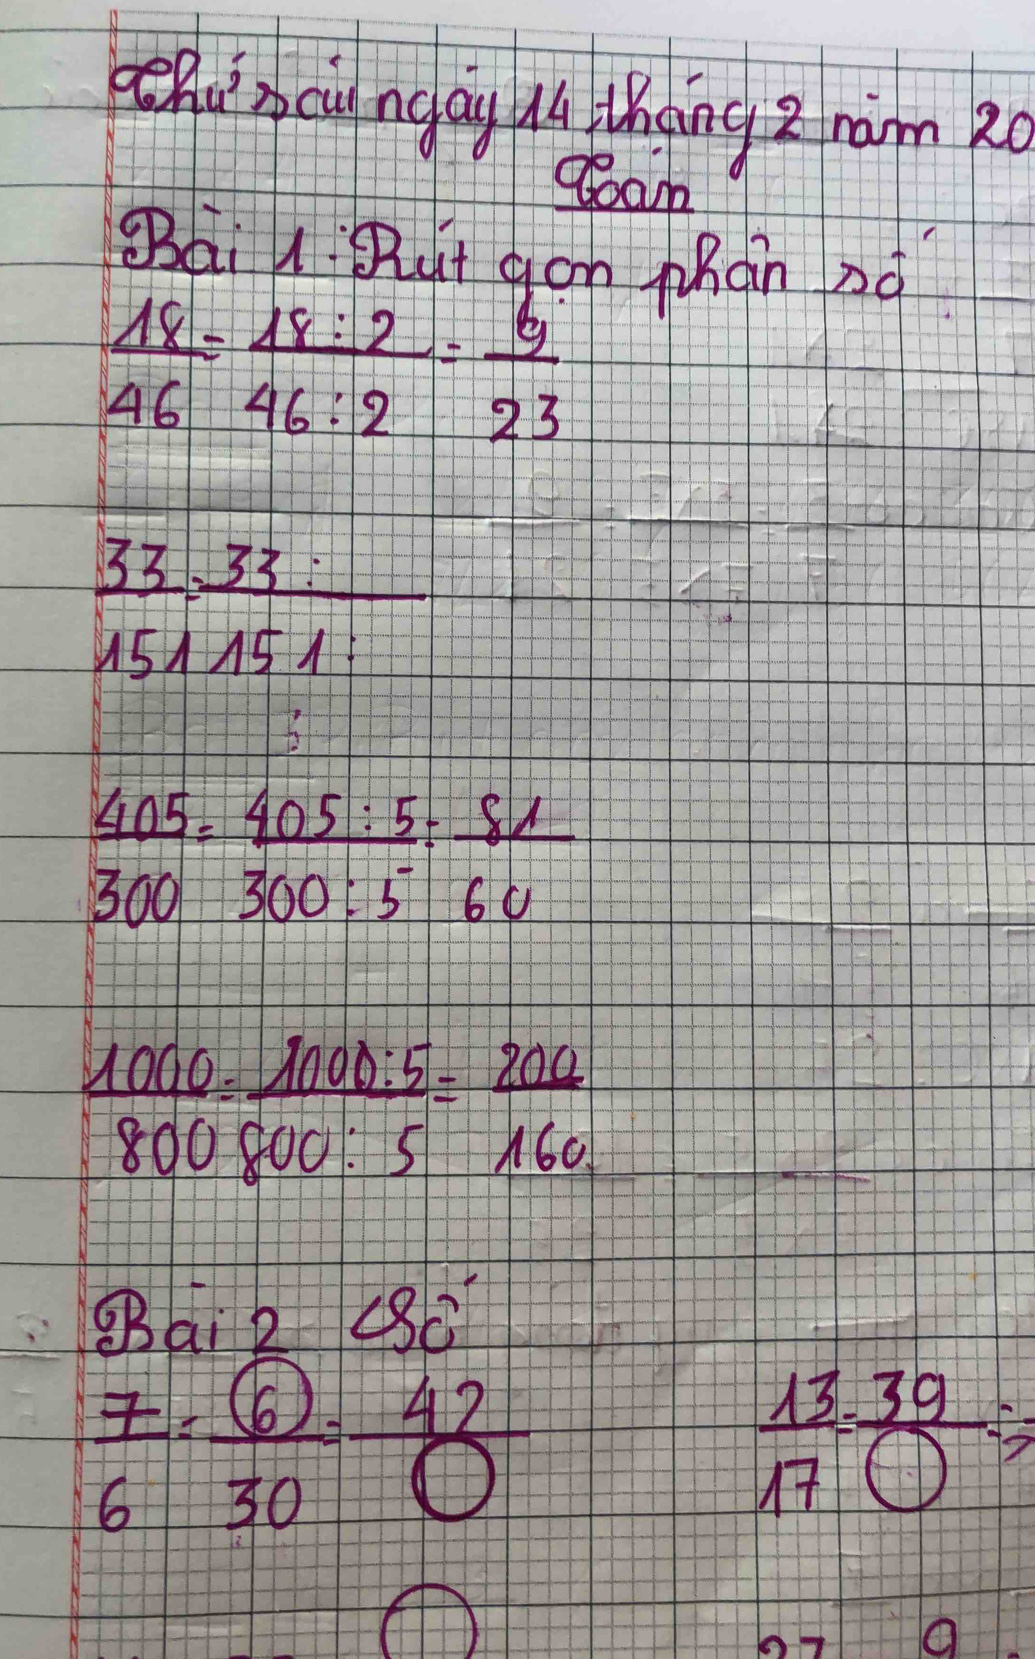 Thứ sáu ngày 14 tháng 2 năm 20
Toán
Bài 1: Rút gọn phân số
18/46 = 18:2/46:2 = 9/23
33/151 = 33:/151:
405/300 = 405:5/300:5 = 81/60
1000/800 = 1000:5/800:5 = 200/160
Bài 2 Số
7/6 = 6/30 = 42/◯ 13/17 = 39/◯ =
9